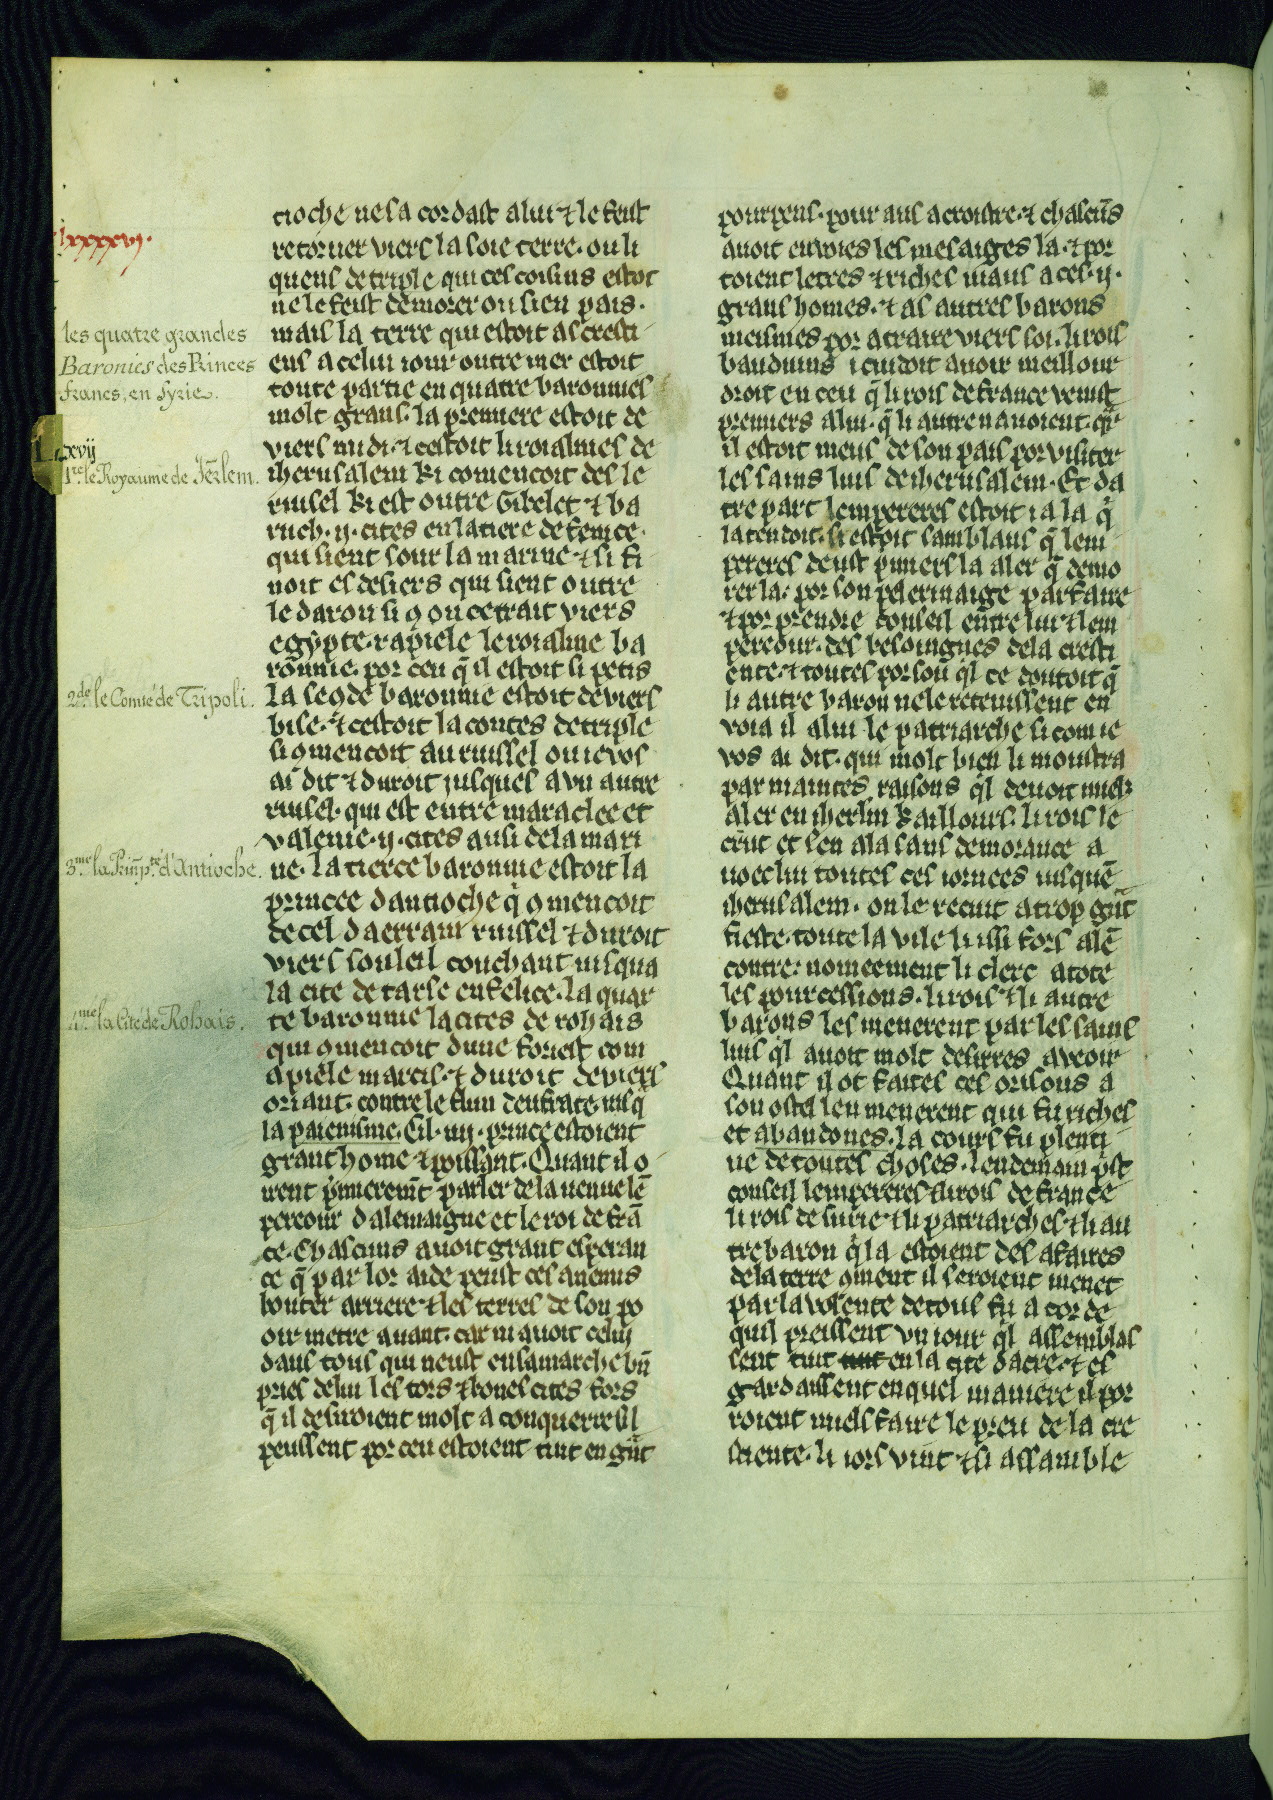 lxxxxvj.
les quatre grandes
Baronies des Princes
francs, en Syrie.
xvij
1re. le Royaume de Jérlem.
2de. le Comté de Tripoli.
3me. la Prinpté d'Antioche.
4me. la Cité de Rohais.
tioche ne sa cordast a lui ⁊ le feist
retorner viers la soie terre. ou li
quens de triple qui ces coisins estoit
ne le feist demorer ou sien pais.
mais la terre qui estoit as cresti
ens a celui iour outre mer estoit
toute partie en quatre baronnies
molt grans. la premiere estoit de
viers midi. ⁊ cestoit li roialmes de
iherusalem ki comencoit des le
ruisel ki est outre Gibelet ⁊ ba
ruch. ij. cites en la tiere de fenice.
qui sient sour la marine ⁊ si fi
noit es desiers qui sient outre
le daron si 9 on cetrait viers
egypte. rapiele le roialme ba
ronnie. por ceu q̄ il estoit si petis
la se9de baronnie estoit deviers
bise. ⁊ cestoit la contes de triple
si 9mencoit au ruissel ou ie vos
ai dit ⁊ duroit jusques a vn autre
ruisel. qui est entre maraclee et
valenie. ij. cites ausi de la mari
ne. la tierce baronnie estoit la
princee dantioche q̇ 9mencoit
de cel daerrain ruissel ⁊ duroit
viers souleil couchant iusqua
la cite de tarse en felice. la quar
te baronnie la cites de rohais
qui 9mencoit dune foriest com
apiele marcis. ⁊ duroit deviers
oriant. contre le flun deufrate. iusq̇
la paienisme. Cil. iiij. prince estoient
grant home ⁊ poissant. Quant il o
irent p̄mierem̄t parler de la venue lē
pereour dalemaigne et le roi de frā
ce. Chascuns avoit grant esperan
ce q̄ par lor aide peust ces anemis
bouter arriere ⁊ les terres de son po
oir metre auant. car ni auoit celui
daus tous qui neust en sa marche bn̄
pries de lui les tors ⁊ bones cites fors
q̄ il desiroient molt a conquerre sil
peussent por ceu estoient tuit en gn̄t
pourpens. pour aus acroistre. ⁊ chascūs
auoit envoies les mesaiges la. ⁊ por
toient letres ⁊ riches maus a ces. ij.
grans homes. ⁊ as autres barons
meismes por atraire viers soi. li rois
bauduins i cuidoit auoir meillour
droit en ceu q̄ li rois de france venist
premiers a lui. q̄ li autre n auoient. q̄r
il estoit meus de son pais por visiter
les sains luis de iherusalem. Et da
tre part lempereres estoit ia la q̇
latendoit. si estoit samblans q̄ lem
pereres deust p̄miers la aler q̄ demo
rer la. por son pelerinaige parfaire
⁊ por prendre conseil entre lui ⁊ lem
pereour. des besoingnes de la cresti
ente. ⁊ toutes por son q̇l ce doutoit q̄
li autre baron ne le retenissent en
voia il a lui le patriarche si com ie
vos ai dit. qui molt bien li monstra
par maintes raisons q̇l deuoit miels
aler en iherlm kaillours. li rois le
crut et sen ala sans demorance a
uoec lui toutes ces iornees iusquē
iherusalem. ou le recuit a trop gn̄t
fieste. toute la vile li issi fors alē
contre. nomeement li clerc a tote
les pourcessions. li rois ⁊ li autre
barons les menerent par les sains
luis q̇l auoit molt desirres a veoir
Quant il ot faites ces orisons a
son ostel len menerent qui fu riches
et abandones. la cours fu plenti
ue de toutes choses. lendemain p̄st
conseil lempereres ⁊ li rois de france
li rois de surie ⁊ li patriarches ⁊ li au
tre baron q̇ la estoient des afaires
de la terre 9ment il seroient menet
par la volente de tous fu acorde
quil preissent vn iour q̇l assemblas
sent tuit tuit en la cite dacre. ⁊ es
gardaissent en quel maniere il por
roient miels faire le preu de la cre
stiente. li iors vint ⁊ si assamble